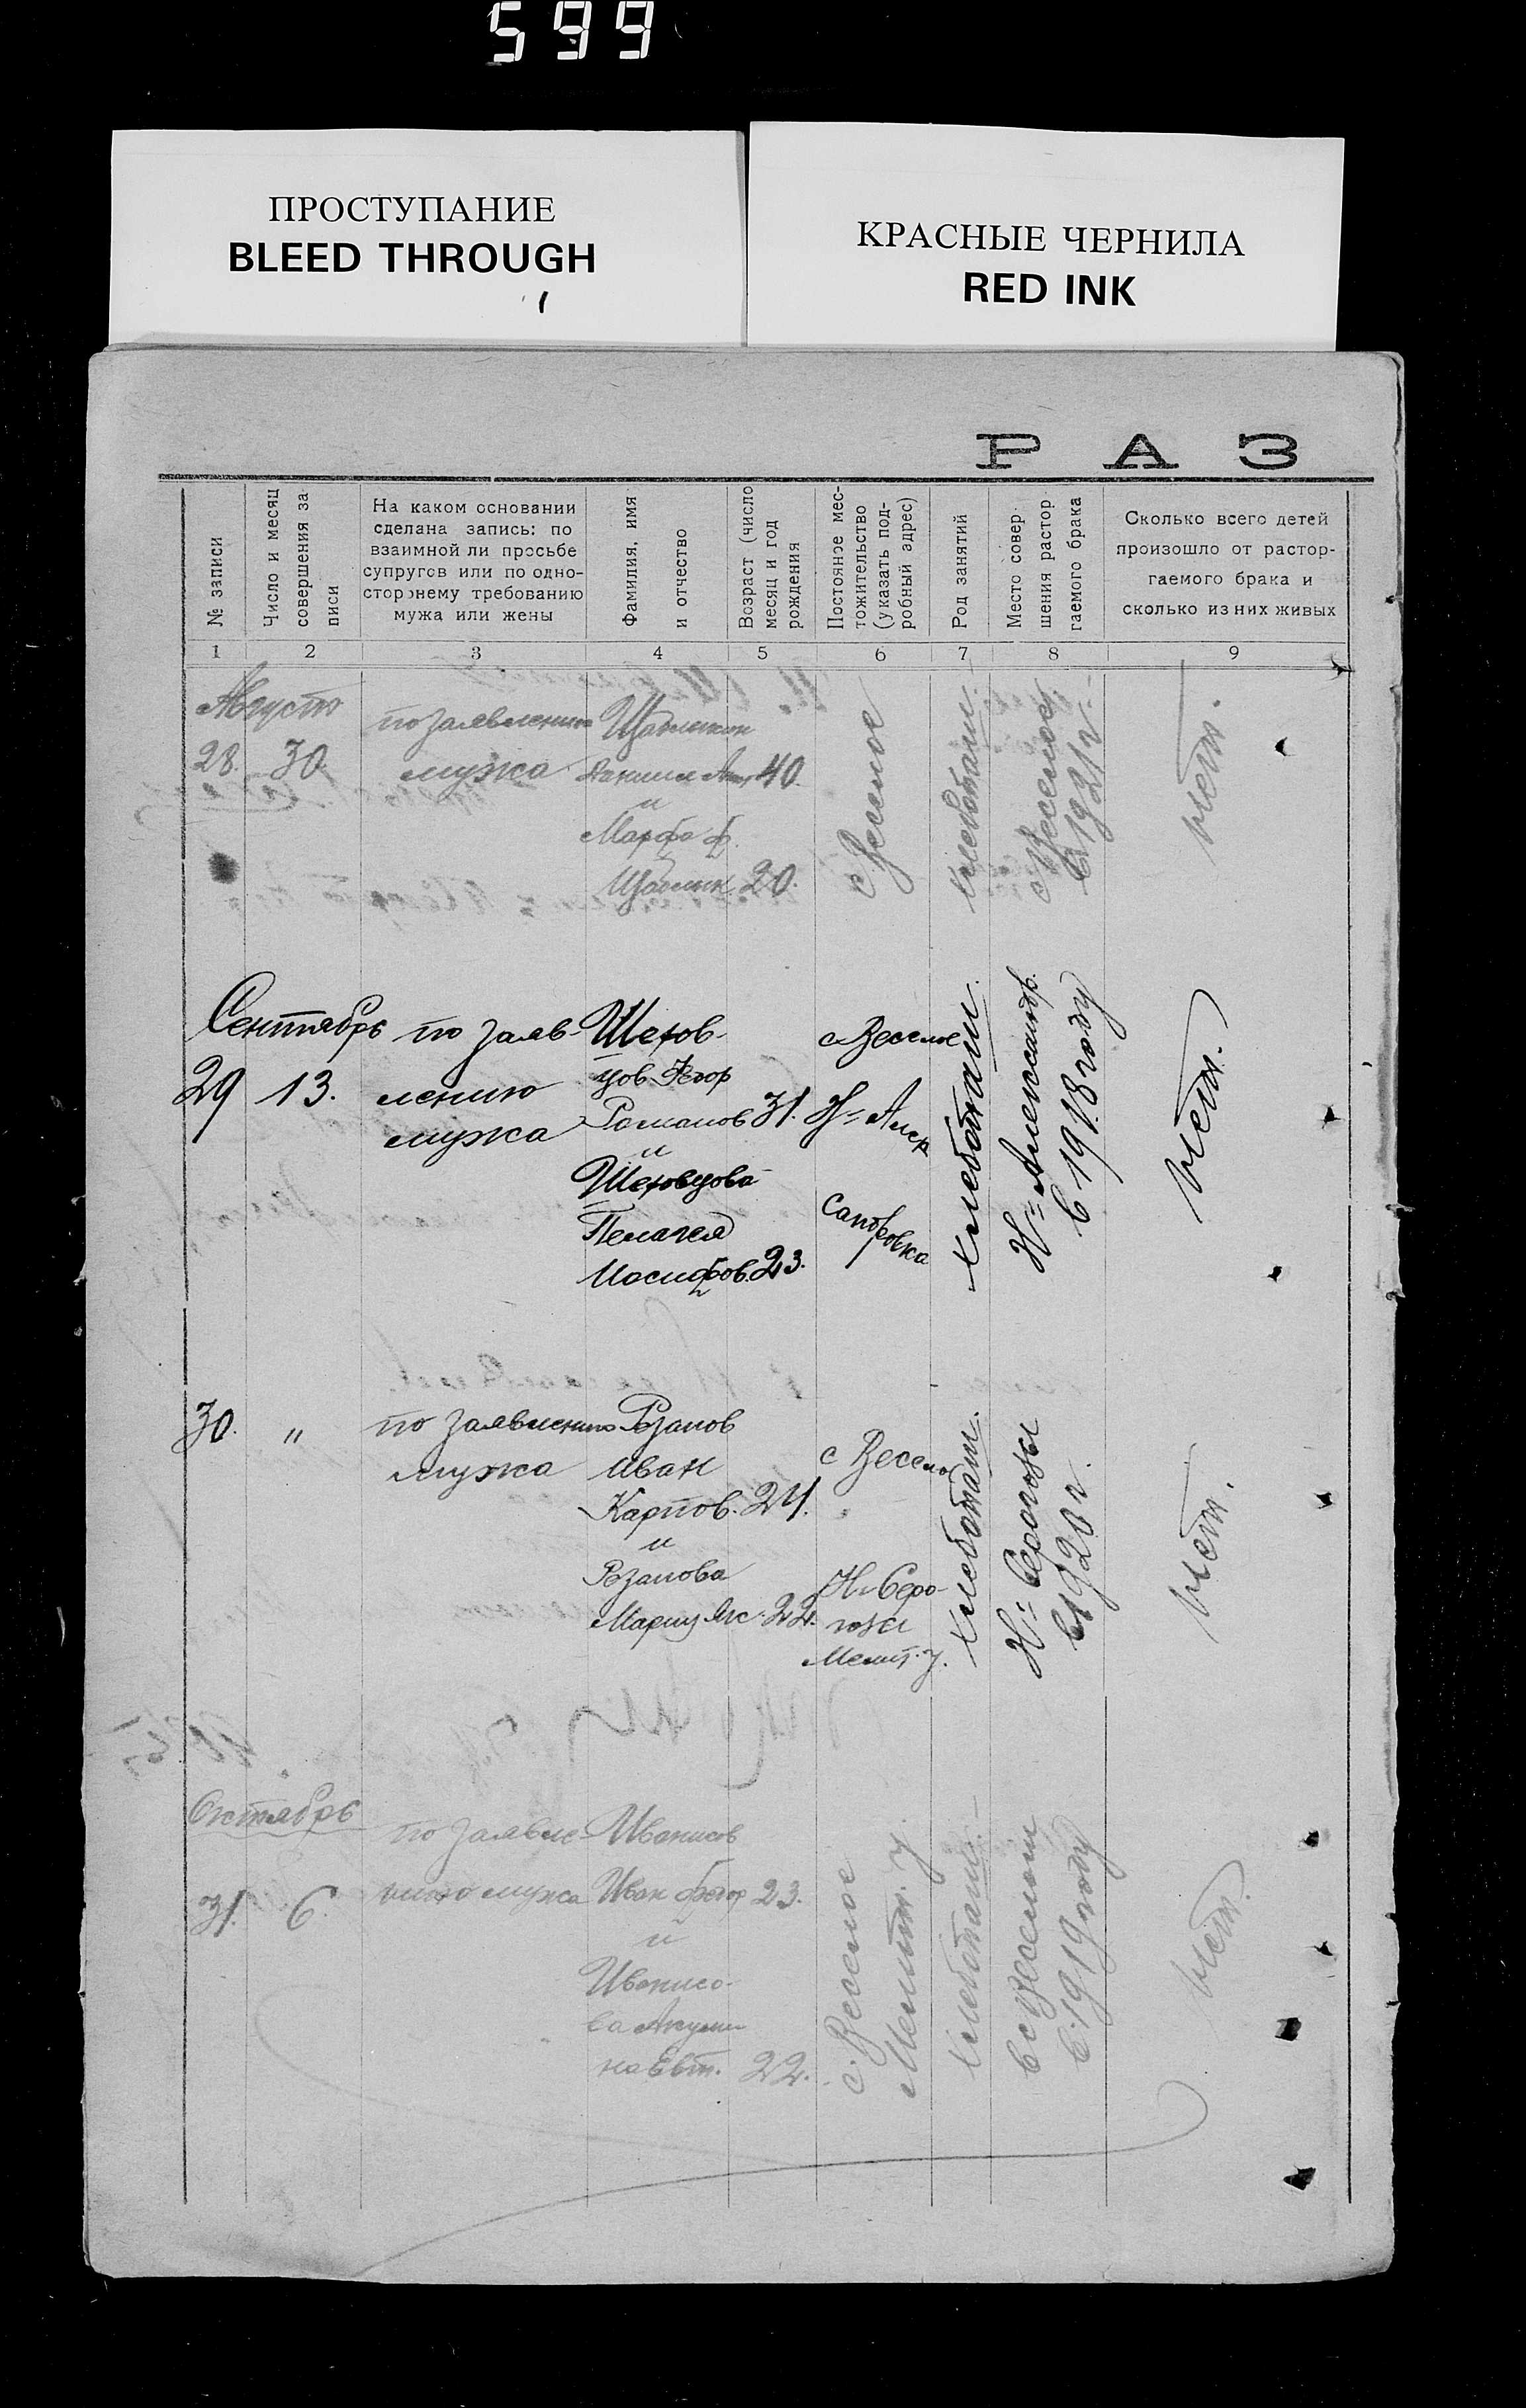 599
ПРОСТУПАНИЕ
BLEED THROUGH
КРАСНЫЕ ЧЕРНИЛА
RED INK
РАЗ
№ записи
Число и месяц
совершения за
писи
На каком основании
сделана запись: по
взаимной ли просьбе
супругов или по одно-
стороннему требованию
мужа или жены
Фамилия, имя
и отчество
Возраст (число
месяц и год
рождения
Постояное мес-
тожительство
(указать под-
робный адрес)
Род занятий
Место совер
шения растор
гаемого брака
Сколько всего детей
произошло от растор-
гаемого брака и
сколько из них живых
1 2 3 4 5 6 7 8 9
Август
28. 30.
по заявлению
мужа
40.
и
Марфа Ф.
20.
с Веселое
хлебопаш.
с Веселое
в 1921 г.
нет.
Сентябрь
29 13.
по заяв-
лению
мужа
Шехов-
цов Фегор
Романов 31.
и
Шеховцова
Пелагея
Иосифов. 23.
с Веселое
Н-Алек
сандровка
хлебопаш.
Н-Александр.
в 1918 году
нет.
30. "
по заявлению
мужа
Рзанов
Иван
Карпов. 24.
и
Рзанова
22.
с Веселое
Н-Серо-
гозы
Мелит. у.
хлебопаш.
Н-Серогозы
в 1920 г.
нет.
Октябрь
31. 6.
по заявле-
нию мужа
Иванисов
Иван Фегор 23.
и
Иванисо-
ва Акули-
на Евт. 22.
с. Веселое
Мелит. у.
хлебопаш.
в с Веселом
в 1919 году
нет.